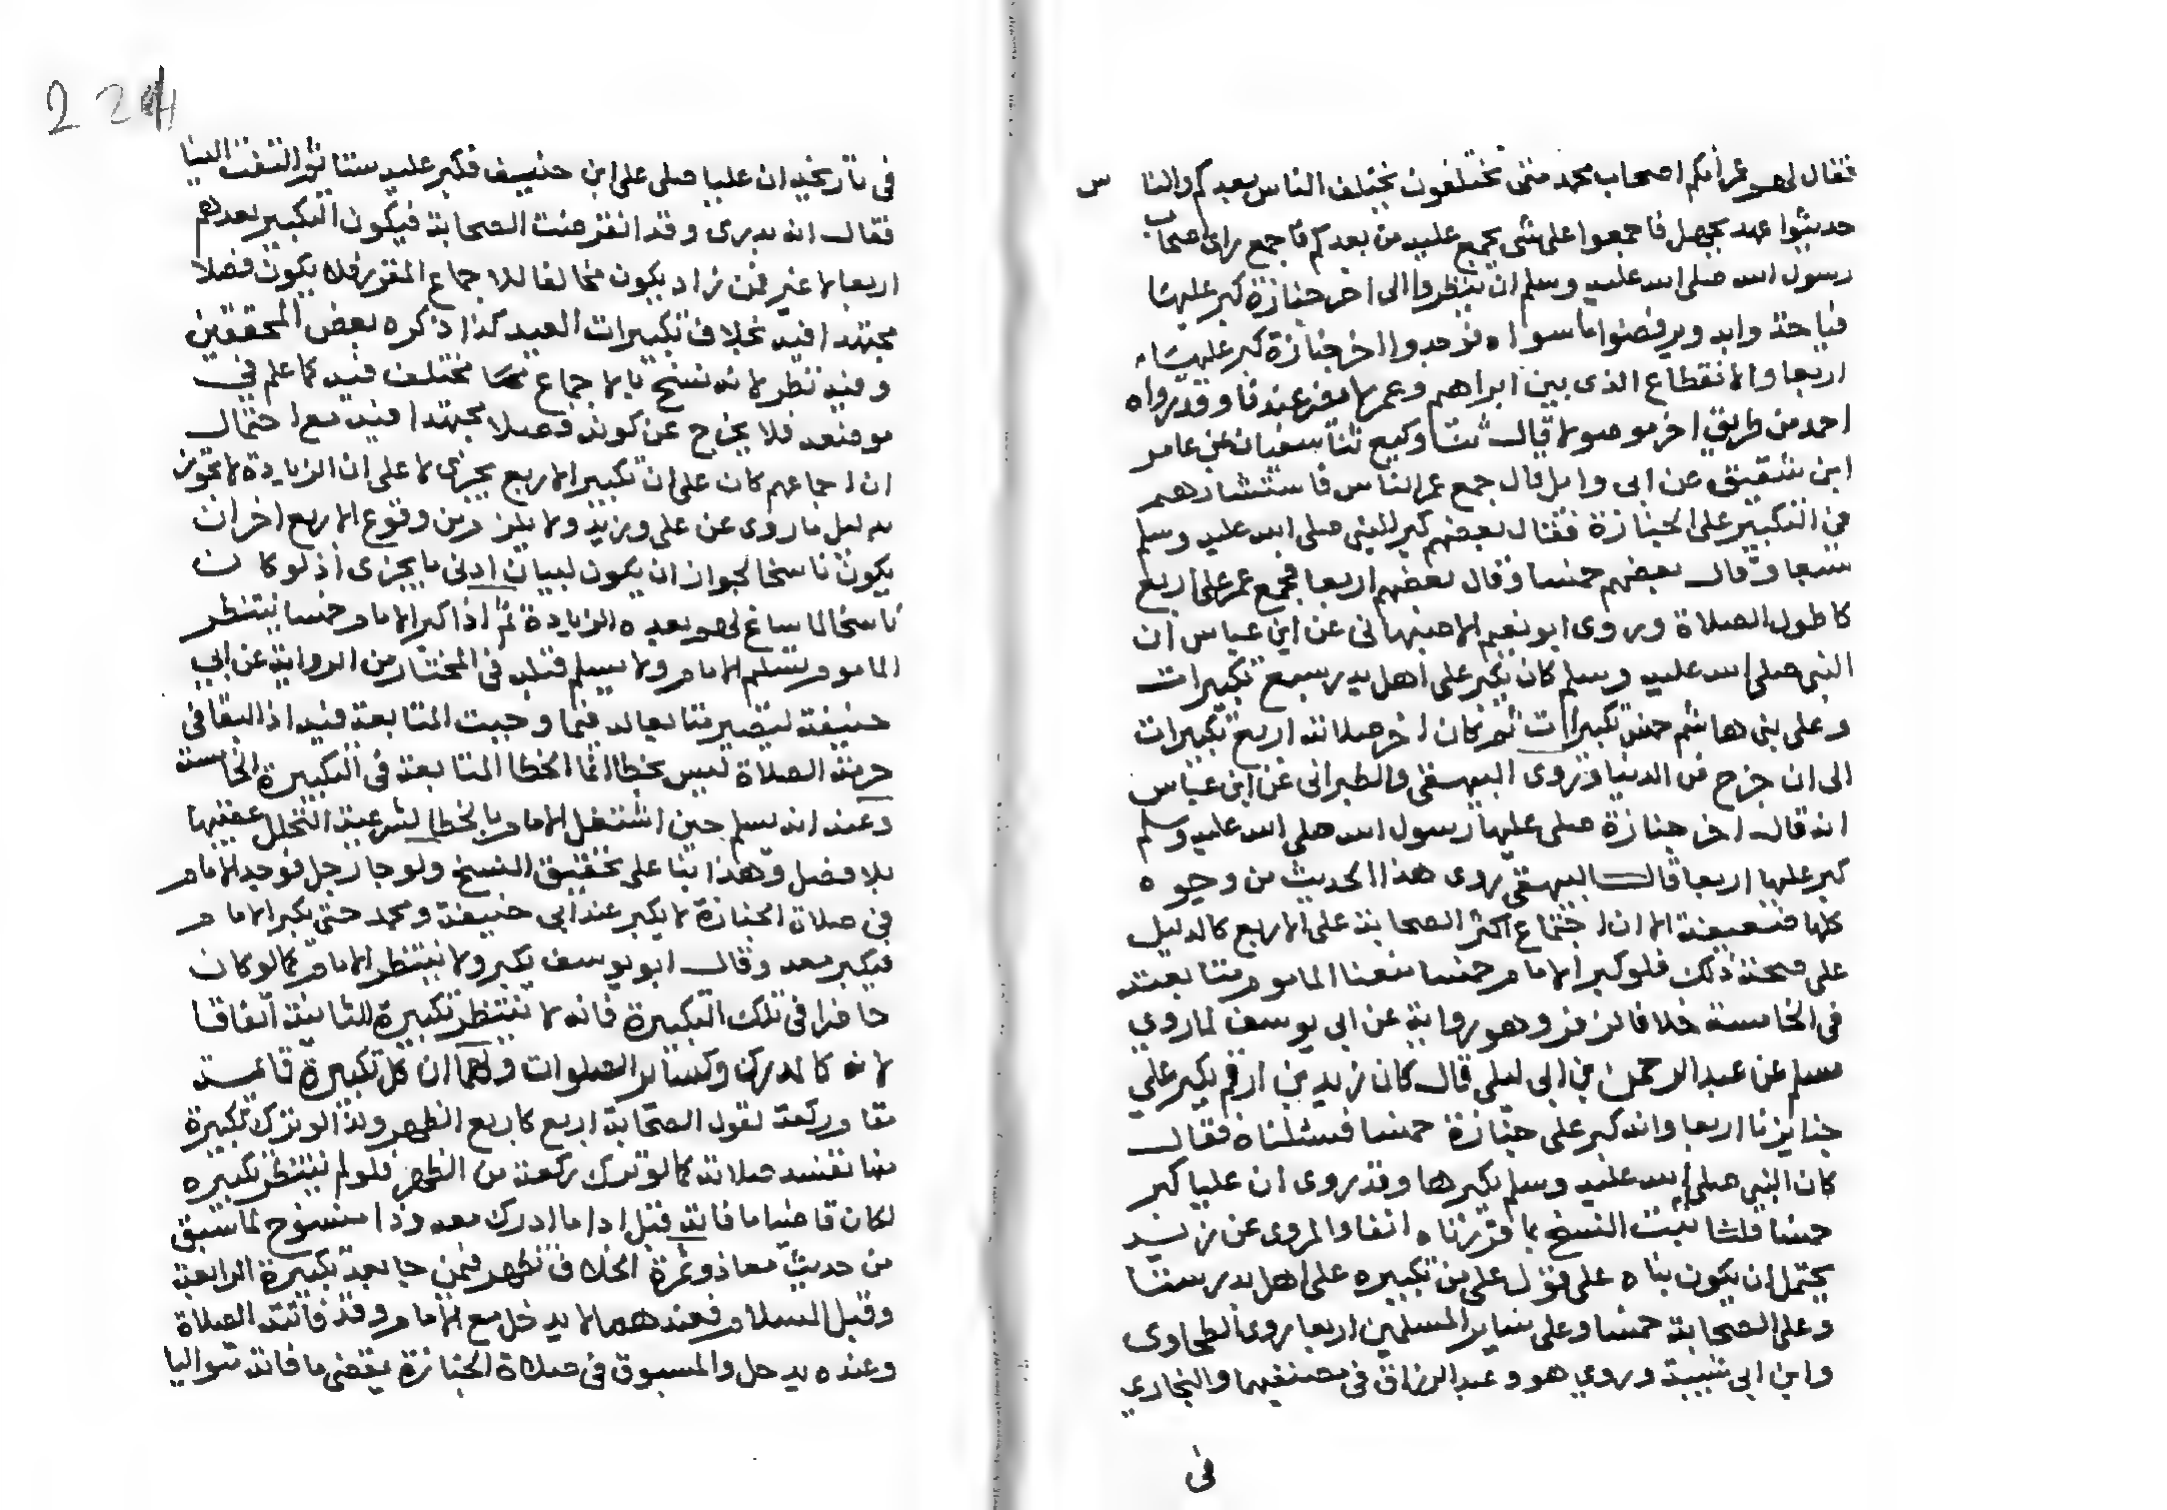 فقال لهم عمر انكم اصحاب محمد متى تختلفون يختلف الناس بعدكم والناس
حديثوا عهد بجهل فاجمعوا على شي يجمع عليه من بعدكم فاجمع راى اصحاب
رسول الله صلى الله عليه وسلم ان ينظروا الى اخر جنازة كبر عليها
فياخذ وابه ويرفضوا ما سواه فوجدوا اخر جنازة كبر عليها
اربعا والانقطاع الذى بين ابراهيم وعمر لا يضر عندنا وقد رواه
احمد من طريق اخر موصولا قال ثنا وكيع ثنا سفيان عن عامر
ابن شقيق عن ابى وايل قال جمع عمر الناس فاستشارهم
فى التكبير على الجنازة فقال بعضهم كبر النبى صلى الله عليه وسلم
سبعا وقال بعضهم خمسا وقال بعضهم اربعا فجمع عمر على اربع
كاطول الصلاة وروى ابو نعيم الاصبهانى عن ابن عباس ان
النبى صلى الله عليه وسلم كان يكبر على اهل بدر سبع تكبيرات
وعلى بنى هاشم خمس تكبيرات ثم كان اخر صلاته اربع تكبيرات
الى ان خرج من الدنيا وروى البيهقى والطبرانى عن ابن عباس
انه قال اخر جنازة صلى عليها رسول الله صلى الله عليه وسلم
كبر عليها اربعا قال البيهقى روى هذا الحديث من وجوه
كلها ضعيفة الا ان اجتماع اكثر الصحابة على الاربع كالدليل
على صحة ذلك فلو كبر الامام خمسا منعنا الماموم متابعته
فى الخامسة خلافا لزفر وهو رواية عن ابى يوسف لما روي
مسلم عن عبد الرحمن بن ابى ليلى قال كان زيد بن ارقم يكبر على
جنايزنا اربعا وانه كبر على جنازة خمسا فسئلناه فقال
كان النبى صلى الله عليه وسلم يكبرها وقد روى ان عليا كبر
خمسا قلنا ثبت النسخ بما قررناه انفا والمروى عن زيد
يحتمل ان يكون بناه على قول على من تكبيره على اهل بدر ستا
وعلى الصحابة خمسا وعلى ساير المسلمين اربعا روى الطحاوى
وابن ابى شيبة وروي هو وعبد الرزاق فى مصنفيهما والبخاري
فى
224
فى تاريخه ان عليا صلى على ابن حنيف فكبر عليه ستا ثم التفت الينا
فقال انه بدرى وقد انقرضت الصحابة فيكون التكبير بعدهم
اربعا لا غير فمن زاد يكون مخالفا للاجماع المقرر فلا يكون فصلا
مجتهدا فيه بخلاف تكبيرات العيد كذا ذكره بعض المحققين
وفيه نظر لانه نسخ بالاجماع مختلف فيه كما علم فى
موضعه فلا يخرج عن كونه فصلا مجتهدا فيه مع احتمال
ان اجماعهم كان على ان تكبير الاربع يجزى لا على ان الزيادة لا تجوز
بدليل ما روى عن على وزيد ولا يلزم من وقوع الاربع اخر ان
يكون ناسخا لجواز ان يكون لبيان ادنى ما يجزى اذ لو كان
ناسخا لما ساغ لهم بعده الزيادة ثم اذا كبر الامام خمسا ينتظر
الماموم تسليم الامام ولا يسلم قبله فى المختار من الرواية عن ابى
حنيفة ليصير متابعا له فيما وجبت المتابعة فيه اذ البقا فى
حرمة الصلاة ليس بخطا انما الخطا المتابعة فى التكبيرة الخامسة
وعنه انه يسلم حين اشتغل الامام بالخطا لشرعية التحلل عقيبها
بلا فصل وهذا بنا على تحقيق النسخ ولو جا رجل فوجد الامام
فى صلاة الجنازة لا يكبر عند ابى حنيفة ومحمد حتى يكبر الامام
فيكبر معه وقال ابو يوسف يكبر ولا ينتظر الامام كما لو كان
حاضرا فى تلك التكبيرة فانه لا ينتظر تكبيرة للثانية اتفاقا
لانه كالمدرك وكساير الصلوات ولهما ان كل تكبيرة قائمة
مقام ركعة لقول الصحابة اربع كاربع الظهر ولذا لو ترك تكبيرة
منها تفسد صلاته كما لو ترك ركعة من الظهر فلو لم ينتظر تكبيره
لكان قاضيا ما فاته قبل ادا ما ادرك معه وذا منسوخ لما سبق
من حديث معاذ وثمرة الخلاف تظهر فيمن جا بعد تكبيرة الرابعة
وقبل السلام فعندهما لا يدخل مع الامام وقد فاتته الصلاة
وعنده يدخل والمسبوق فى صلاة الجنازة يقضى ما فاته متواليا